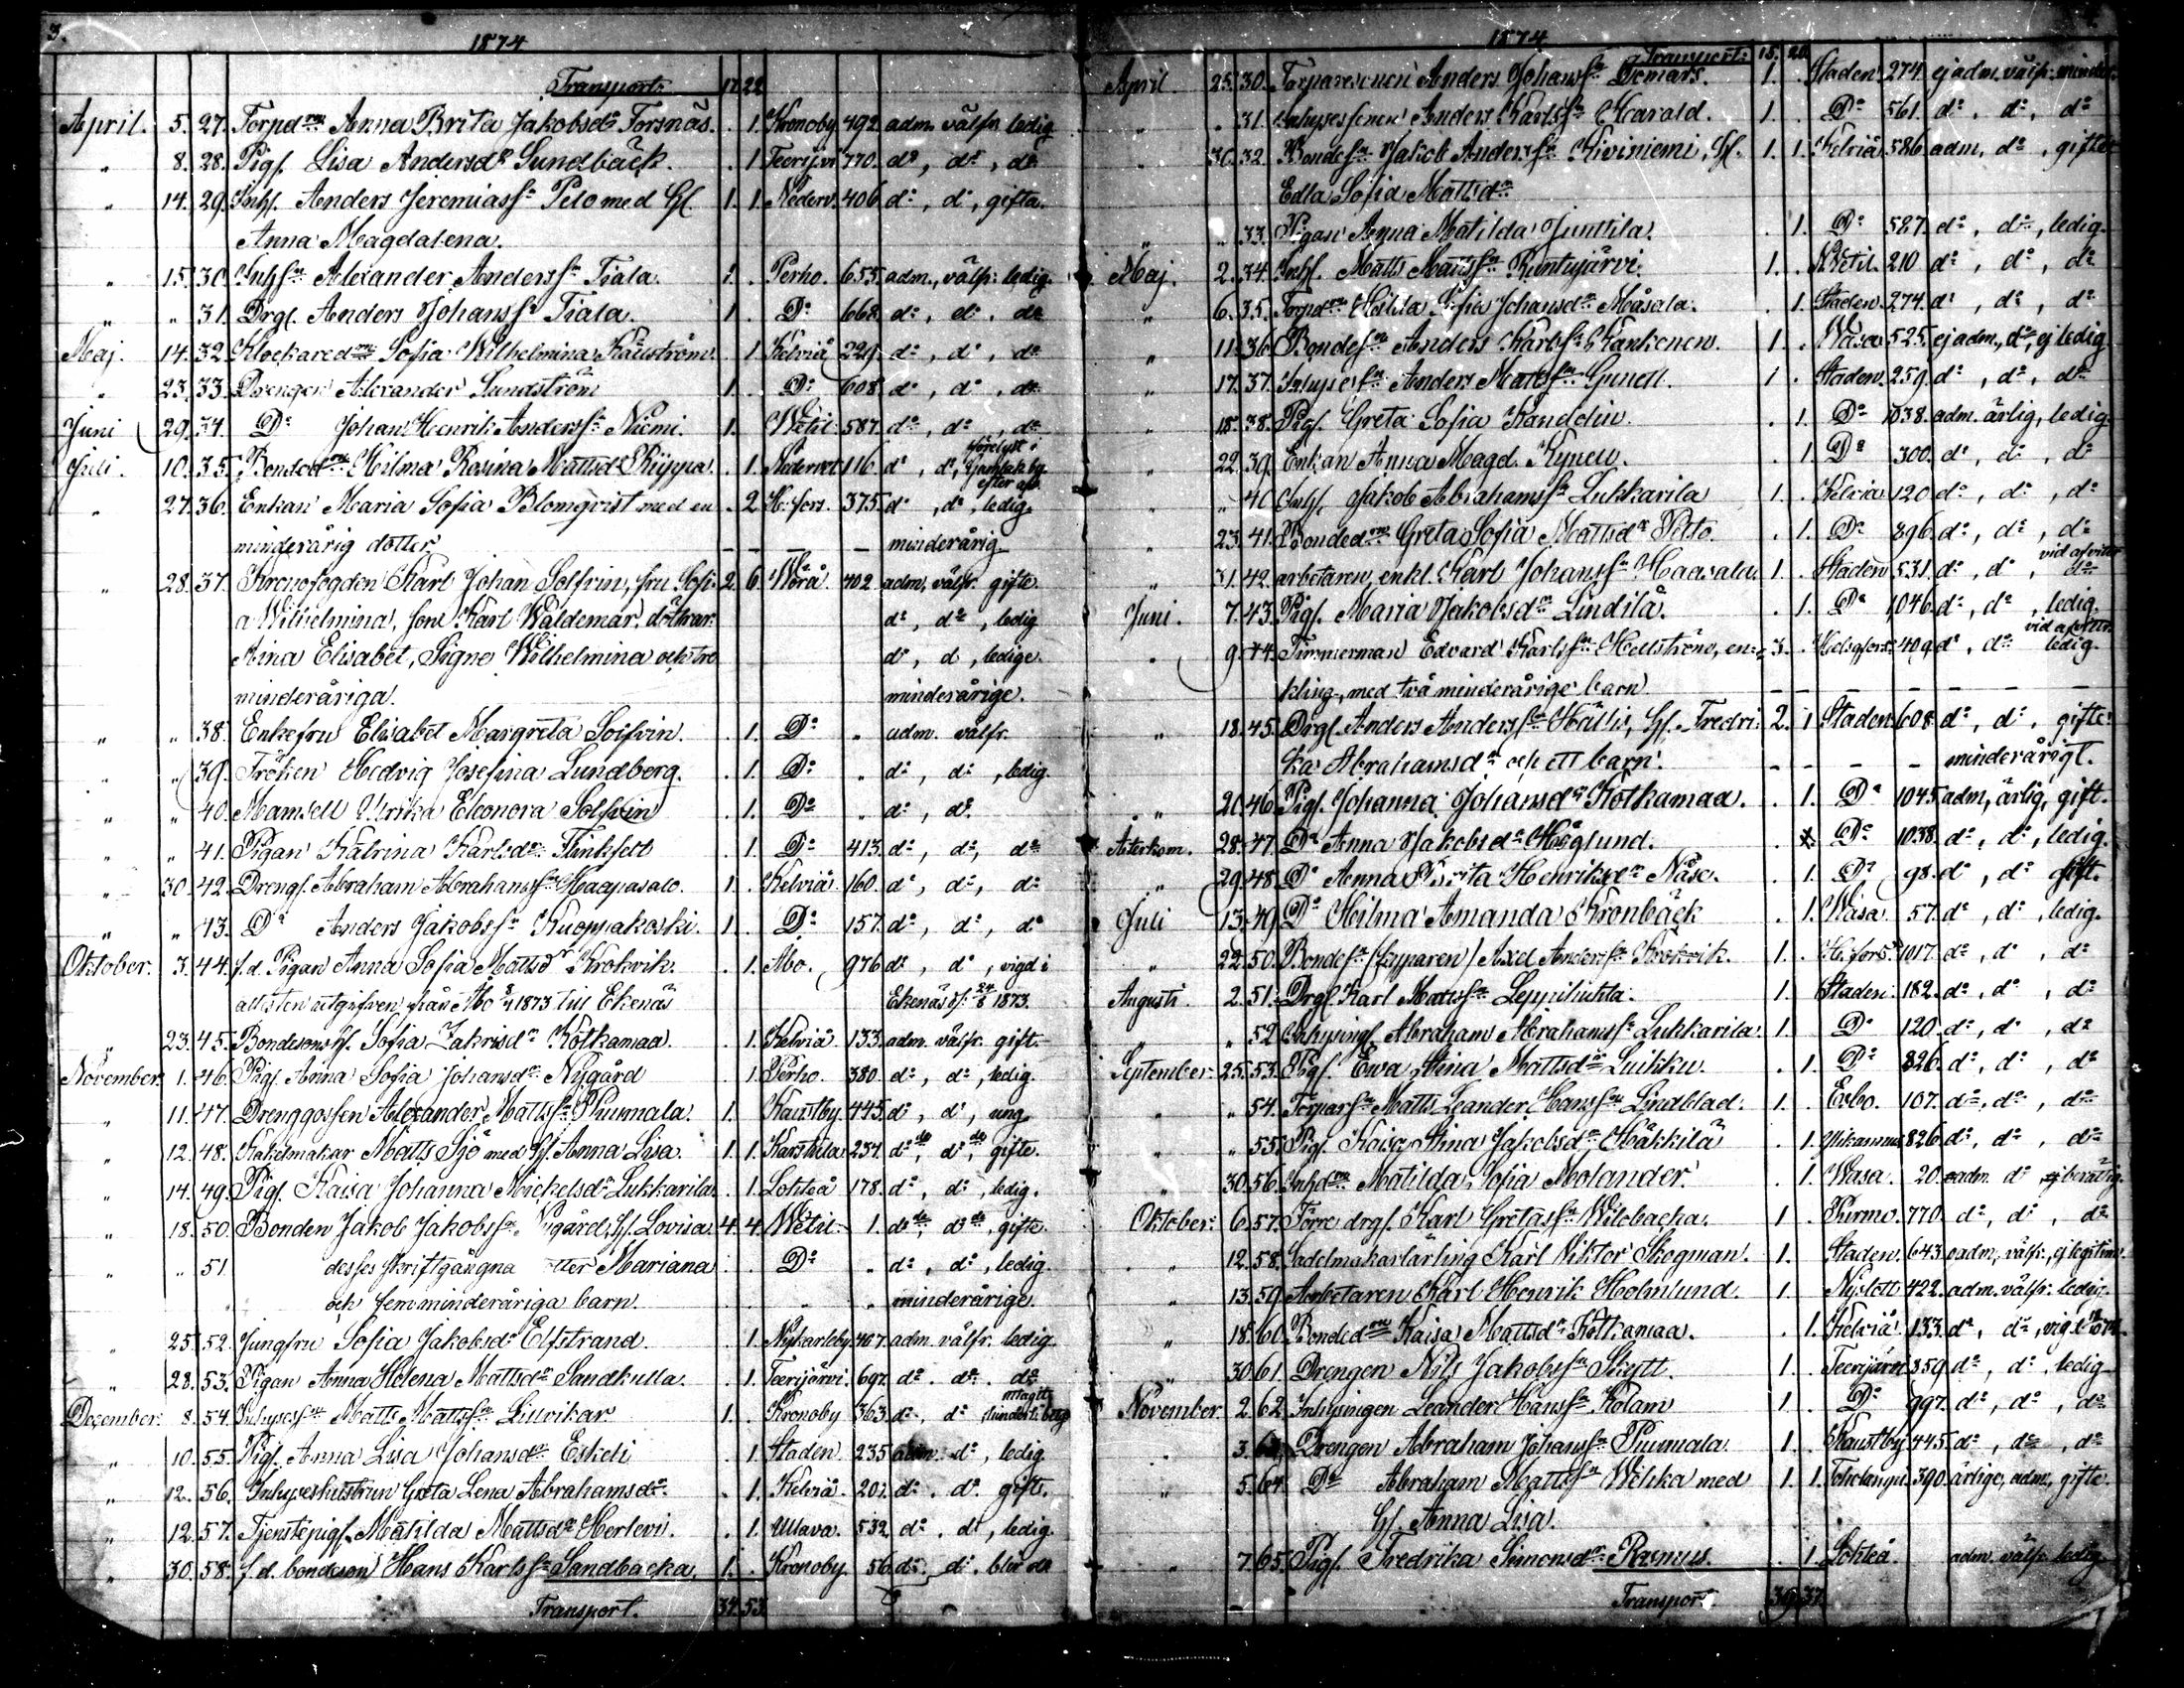 3.
1874
Transport: 17. 22
April. 5. 27. Torpdrn Anna Brita Jakobsdr Forsnäs. . 1. Kronoby 492. adm. välfr. ledig
" 8. 28. Pigf. Lisa Andersdr Sundbäck. . 1 Teerijvi 770. do, do, do
" 14. 29. Inhf. Anders Jeremiasfn Pelo med Hf. 1. 1. Nederv. 406. do, do, gifta.
Anna Magdalena.
" 15. 30. Inhfn Alexander Andersfn Tiala. 1. . Perho. 655. adm., välfr. ledig.
" " 31. Drgf. Anders Johansfn Tiala. 1. . Do 668. do, do, do
Maj. 14. 32. Klockaredrn Sofia Wilhelmina Källström. . 1. Kelviå 229. do, do, do
" 23. 33. Drengen Alexander Sundström 1. . Do 608. do, do, do
Juni 29. 34. Do Johan Henrik Andersfn Niemi. 1. Wetil 587. do, do, do
Juli. 10. 35. Bondedrn Hilma Rosina Mattsdr Riippa. . 1. Nedervet 116. do, do,
27. 36. Enkan Maria Sofia Blomqvist med en . 2 H:fors. 375. do, do, ledig.
minderårig dotter. minderårig
" 28. 37. Kronofogden Karl Johan Solfvin, fru Sofi- 2. 6. Wörå 402. adm. välfr. gifte.
a Wilhelmina, son Karl Waldemar, döttrar: do, do, ledig
Aina Elisabet, Signe Wilhelmina och tre do, do, ledige.
minderåriga. minderårige.
" " 38. Enkefru Elisabet Margreta Solfvin. . 1. Do " adm. välfr.
" " 39. Fröken Hedvig Josefina Lundberg. . 1. Do " do, do, ledig.
" " 40. Mamsell Ulrika Eleonora Solfvin . 1. Do " do, do
" " 41. Pigan Katrina Karlsdr Flinkfelt . 1. Do 413. do, do, do
" 30. 42. Drengf. Abraham Abrahamsfn Haapasalo. 1. . Kelviå 160. do, do, do
" " 43. Do Anders Jakobsfn Kuopjakoski. 1. . Do 157. do, do, do
Oktober. 3. 44. f.d. Pigan Anna Sofia Mattsdr Krokvik. . 1. Åbo. 976 do, do, vigd i
attesten utgifven från Åbo 1873 till Ekenäs Ekenäs 24/8 1873.
" 23. 45. Bondesonshf. Sofia Zakrisdr Kotkamaa. . 1. Kelviå 133. adm. välfr. gift.
November. 1. 46. Pigf. Anna Sofia Johansdr Nygård . 1. Perho. 380. do, do, ledig.
" 11. 47. Drenggossen Alexander Mattsfn Puumala. 1. Kaustby 445. do, do, ung
" 12. 48. Kakelmakar Matts Sjö med Hf. Anna Lisa. 1. 1. Karstula 254. do do, do do, gifte.
" 14. 49. Pigf. Kaisa Johanna Mickelsdr Lukkarila . 1. Lohteå 178. do, do, ledig.
" 18. 50. Bonden Jakob Jakobsfn Nygård, Hf. Lovisa. 4. 4. Wetil 1. do do, do do, gifte
" " 51. desses skriftgångna dotter Mariana . . Do " do, do, ledig.
och fem minderåriga barn. " " minderårige.
" 25. 52. Jungfru Sofia Jakobsdr Elfstrand. . 1. Nykarleby 467. adm. välfr. ledig
" 28. 53. Pigan Anna Helena Mattsdr Sandkulla. . 1. Teerijärvi. 692. do. do. do
December. 8. 54. Inhysesfn Matts Mattsfn Liuvikar. 1. . Kronoby 363. do, do
" 10. 55. Pigf. Anna Lisa Johansdr Eskeli . 1 Staden 235 adm. do, ledig
" 12. 56. Inhyseshustrun Greta Lena Abrahamsdr . 1. Kelviå. 201. do. do. gift.
" 12. 57. Tjenstepigf. Matilda Mattsdr Herlevi. . 1. Ullava. 532. do. do, ledig.
" 30. 58. f.d. bondeson Hans Karlsfn Sandbacka. 1. . Kronoby. 56. do, do.
Transport. 34. 53.
4.
1874
Transport: 18. 20.
April. 25. 30. Torparesonen Anders Johansfn 1. . Staden. 274. ej adm. välfr.
" " 31. Inhysessonen Anders Karlsfn Harald. 1. . Do 561. do, do, do
" 30. 32. Bondefn Jakob Andersfn Kiviniemi, Hf. 1. 1. Kelviå 586. adm, do, gifte
Edla Sofia Mattsdr
" " 33. Pigan Anna Matilda Junttila. . 1. Do 587. do, do, ledig.
Maj. 2. 34. Inhf. Matts Mattsfn Runtujärvi. 1. . Wetil. 210 do, do, do
" 6. 35. Torpdrn Hilda Sofia Johansdr Måsala. . 1. Staden. 274. do, do, do
" 11. 36. Bondefn Anders Karlsfn Kankonen. 1. . Wasa 525. ej adm., do, ej ledig
" 17. 37. Inhysesfn Anders Mattsfn 1 . Staden. 259. do, do, do
" 18. 38. Pigf. Greta Sofia Kandelin. . 1. Do 1038. adm. ärlig, ledig.
" 22. 39. Enkan Anna Magd. Kynen. . 1. Do 300. do, do, do
" " 40. Inhf. Jakob Abrahamsfn Lukkarila 1. . Kelviå 120 do, do, do
" 23. 41. Bondedrn Greta Sofia Mattsdr Peltо. . 1. Do 396. do, do, do
" 31. 42. arbetaren, enkl. Karl Johansfn Haavala. 1. . Staden 531. do, do, do
Juni. 7. 43. Pigf. Maria Jakobsdr Lindilä. . 1. Do 1046. do, do, ledig.
" 9. 44. Timmerman Edvard Karlsfn Hellström, en- 3. . Helsgfors 409. do, do ledig.
kling, med två minderårige barn
" 18. 45. Drgf. Anders Andersfn Hällis, Hf. Fredri- 2. 1 Staden 608. do, do, gifte.
ka Abrahamsdr och ett barn. minderårigt.
" 21. 46. Pigf. Johanna Johansdr Kotkamaa. . 1. Do 1045. adm, ärlig, gift.
Återkom. 28. 47. Do Anna Jakobsdr Höglund. . Do 1038. do, do, ledig.
" 29. 48. Do Anna Brita Henriksdr Näse. . 1. Do 98. do, do gift.
Juli 13. 49. Do Hilma Amanda Kronbäck . 1. Wasa. 57. do, do, ledig.
" 22. 50. Bondefn (Lysparen) Axel Andersfn Krokvik. 1. . H:fors. 1017. do, do, do
Augusti. 2. 51. Drgf. Karl Mattsfn Leppiluhta. 1. Staden. 182. do, do, do
" " 52 Inhysingf. Abraham Abrahamsfn Lukkarila. 1. Do 120. do, do, do
September. 25. 53. Pigf. Ewa Stina Mattsdr Luikku. . 1. Do 826. do, do, do
" " 54. Torparfn Matts Leander Hansfn Lindblad. 1. . Esbo. 107. do, do, do
" " 55. Pigf. Kaisa Stina Jakobsdr Häkkilä . 1. 826. do, do, do
" 30. 56. Inhdrn Matilda Sofia Molander. . 1. Wasa. 20. oadm. do
Oktober. 6. 57. Förre drgf. Karl Gretasfn Widbacka. 1 . Purmo. 770. do, do, do
" 12. 58. Sadelmakarlärling Karl Viktor Skogman. 1. Staden. 643. oadm., välfr.,
" 13. 59. Arbetaren Karl Henrik Holmlund. 1. Nyslott 422. adm. välfr. ledig.
" 18. 60. Bondedrn Kaisa Mattsdr Kotkamaa. . 1. Kelviå 133. do, do,
" 30. 61. Drengen Nils Jakobsfn Skytt. 1. Teerijärvi 359 do, do, ledig
November 2. 62. Inhysingen Leander Hansfn Kolam 1 . Do 997. do, do, do
" 3. 63. Drengen Abraham Johansfn Puumala. 1. . Kaustby 445. do, do, do
" 5. 64. Do Abraham Mattsfn Wihka med 1. 1. Toholampi. 390. ärlige, adm., gifte.
Hf. Anna Lisa.
" 7. 65. Pigf. Fredrika Simonsdr Rasmus. . 1. Lohteå. adm. välfr. ledig
Transport. 39. 37.